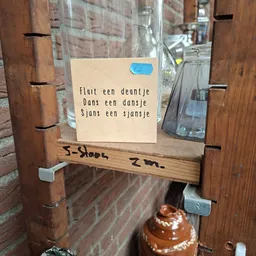 Fluit een deuntje
Dans een dansje
Sjans een sjansje
2 m.